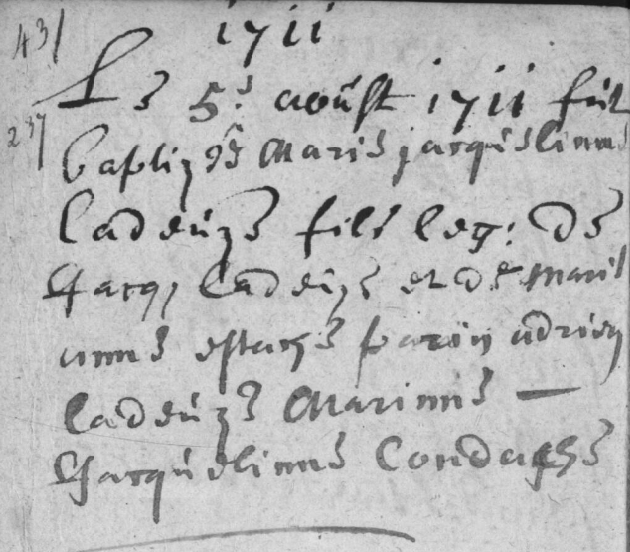 43/
1711
Le 5.e aoust 1711 fut
237
baptizée Marie jacquelinne
Ladeuze fille leg: de
Jacq, Ladeuze et de Marie
anne estache parin adrien
Ladeuze Marinne —
Jacquelinne Condache